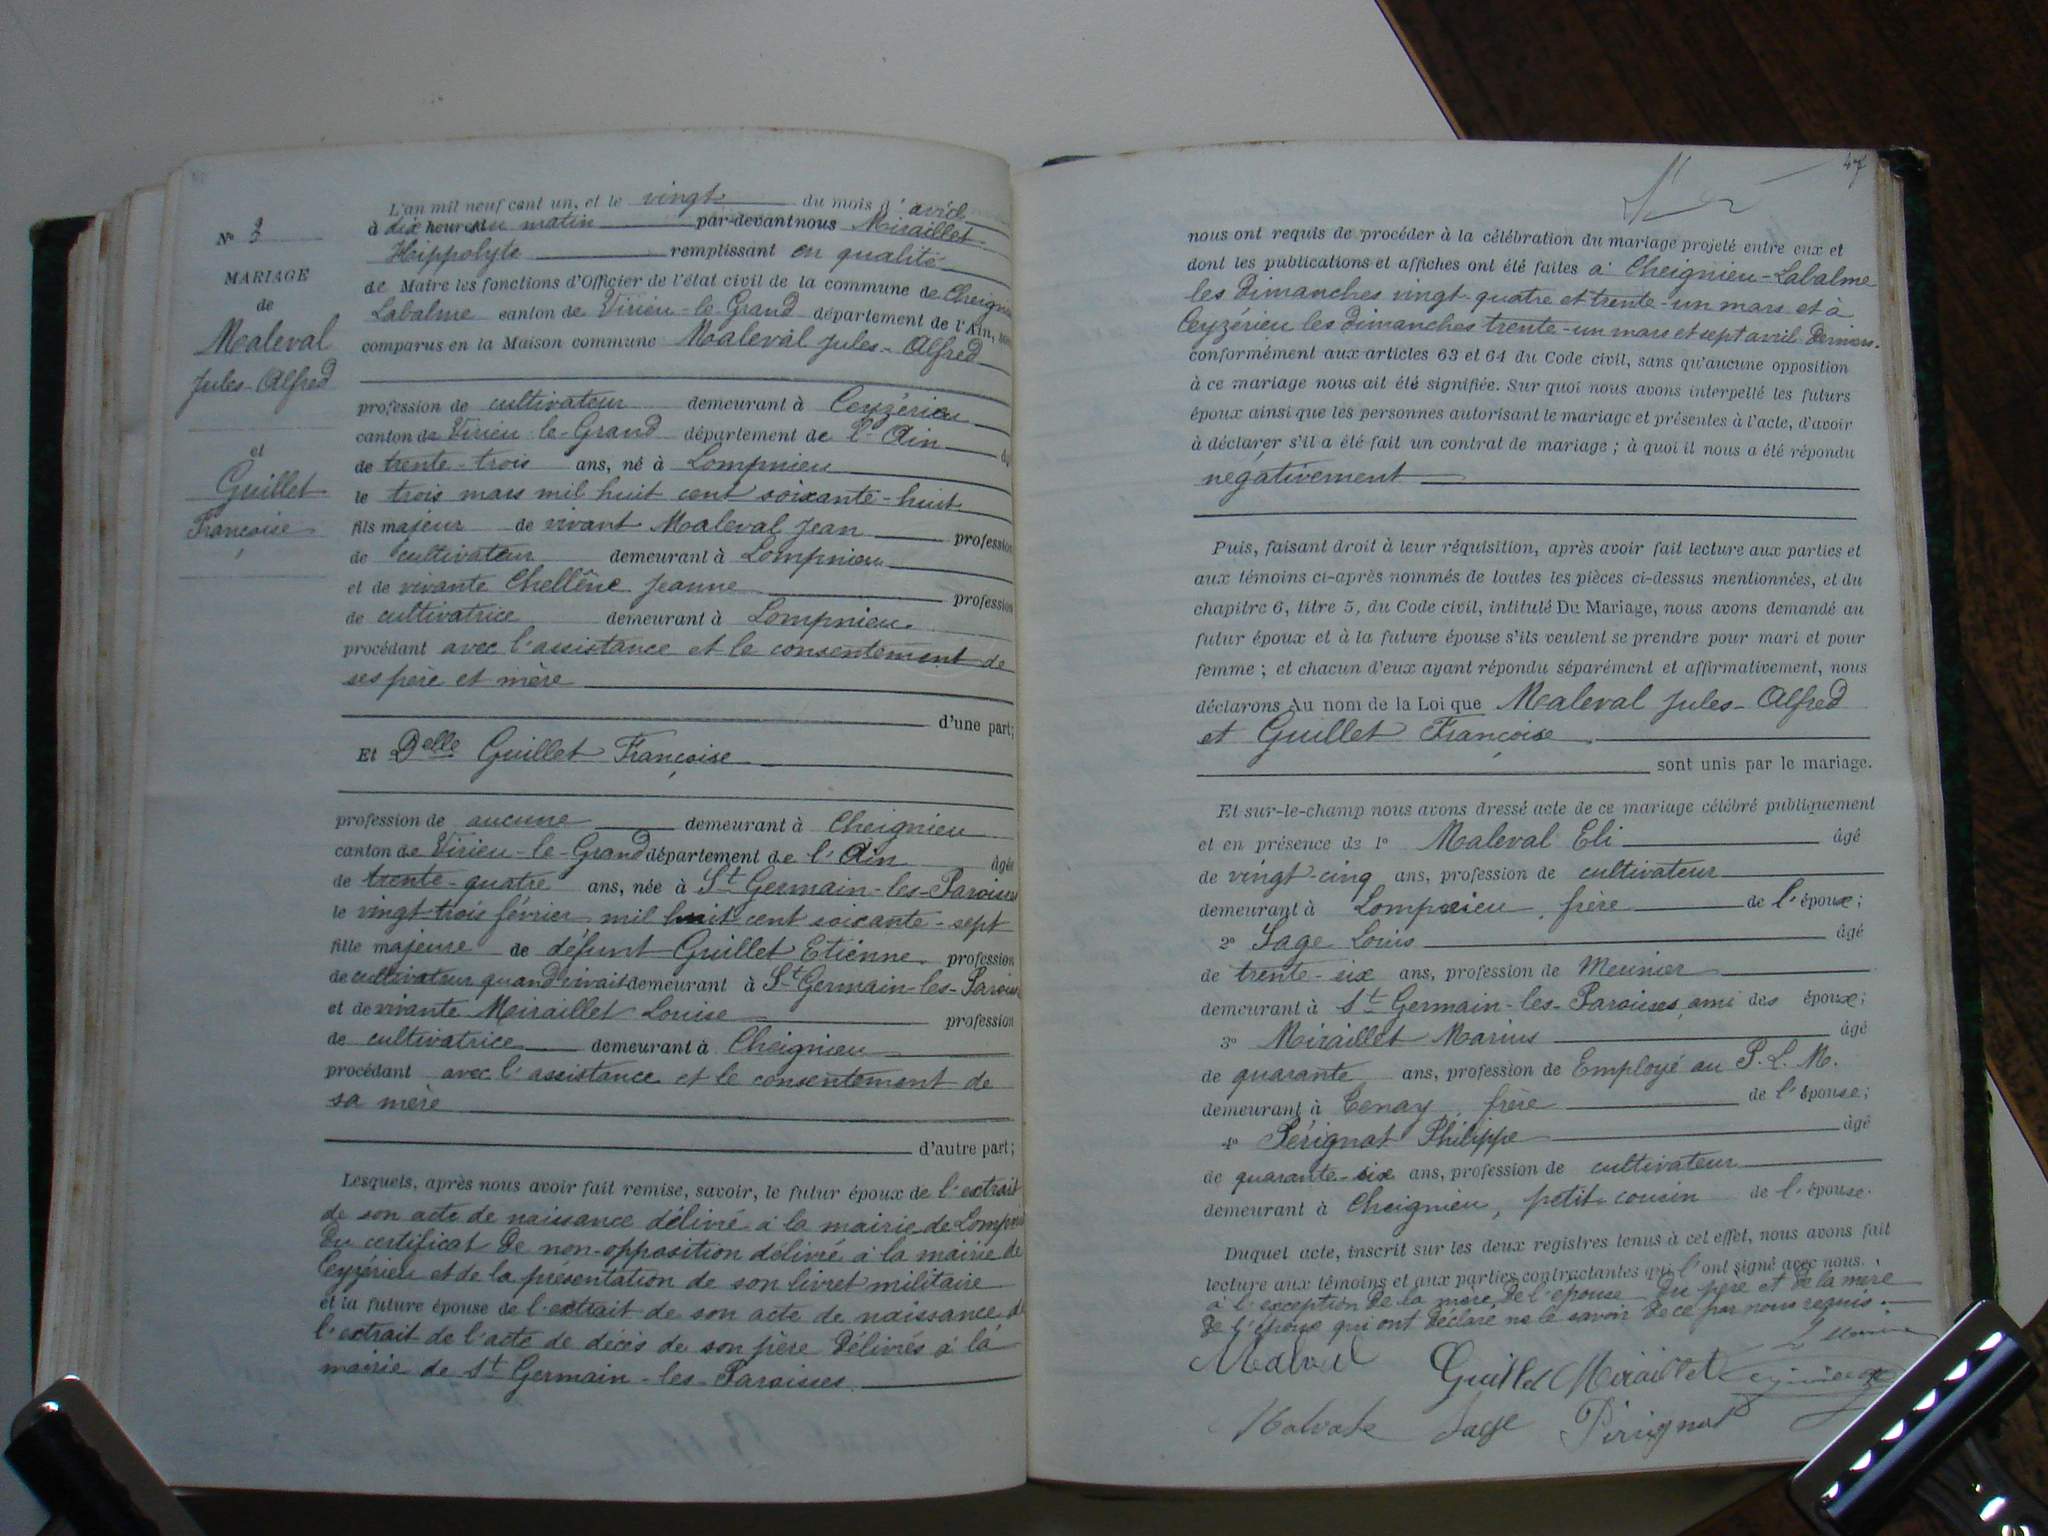 L'an mil neuf cent un, et le vingt du mois d'avril
à dix heures du matin par-devant nous Miraillet
Hippolyte remplissant en qualité
de Maire les fonctions d'Officier de l'état civil de la commune de Cheignieu
Labalme canton de Virieu-le-Grand département de l'Ain, sont
comparus en la Maison commune Maleval Jules-Alfred
profession de cultivateur demeurant à Ceyzérieu
canton de Virieu-le-Grand département de l'Ain âgé
de trente-trois ans, né à Lompnieu
le trois mars mil huit cent soixante-huit
fils majeur de vivant Maleval Jean profession
de cultivateur demeurant à Lompnieu
et de vivante Chellêne Jeanne profession
de cultivatrice demeurant à Lompnieu.
procédant avec l'assistance et le consentement de
ses père et mère
d'une part;
Et Delle Guillet Françoise
profession de aucune demeurant à Cheignieu
canton de Virieu-le-Grand département de l'Ain âgée
de trente-quatre ans, née à St Germain-les-Paroisses
le vingt-trois février mil huit cent soixante-sept
fille majeure de défunt Guillet Etienne profession
de cultivateur quand vivait demeurant à St Germain-les-Paroisses
et de vivante Miraillet Louise profession
de cultivatrice demeurant à Cheignieu
procédant avec l'assistance et le consentement de
sa mère
d'autre part;
Lesquels, après nous avoir fait remise, savoir, le futur époux de l'extrait
de son acte de naissance délivré à la mairie de Lompnieu
du certificat de non-opposition délivré à la mairie de
Ceyzérieu et de la présentation de son livret militaire
et la future épouse de l'extrait de son acte de naissance de
l'extrait de l'acte de décès de son père délivrés à la
mairie de St Germain-les-Paroisses
N° 3
MARIAGE
de
Maleval
Jules-Alfred
et
Guillet
Françoise
47
nous ont requis de procéder à la célébration du mariage projeté entre eux et
dont les publications et affiches ont été faites à Cheignieu-Labalme
les Dimanches vingt-quatre et trente-un mars et à
Ceyzérieu les Dimanches trente-un mars et sept avril derniers.
conformément aux articles 63 et 64 du Code civil, sans qu'aucune opposition
à ce mariage nous ait été signifiée. Sur quoi nous avons interpellé les futurs
époux ainsi que les personnes autorisant le mariage et présentes à l'acte, d'avoir
à déclarer s'il a été fait un contrat de mariage; à quoi il nous a été répondu
négativement
Puis, faisant droit à leur réquisition, après avoir fait lecture aux parties et
aux témoins ci-après nommés de toutes les pièces ci-dessus mentionnées, et du
chapitre 6, titre 5, du Code civil, intitulé Du Mariage, nous avons demandé au
futur époux et à la future épouse s'ils veulent se prendre pour mari et pour
femme; et chacun d'eux ayant répondu séparément et affirmativement, nous
déclarons Au nom de la Loi que Maleval Jules-Alfred
et Guillet Françoise
sont unis par le mariage.
Et sur-le-champ nous avons dressé acte de ce mariage célébré publiquement
et en présence de 1° Maleval Eli âgé
de vingt-cinq ans, profession de cultivateur
demeurant à Lompnieu, frère de l'époux;
2° Sage Louis âgé
de trente-six ans, profession de Meunier
demeurant à St Germain-les-Paroisses, ami des époux;
3° Miraillet Marius âgé
de quarante ans, profession de Employé au P.L.M.
demeurant à Tenay, frère de l'épouse;
4° Pérignat Philippe âgé
de quarante-six ans, profession de cultivateur
demeurant à Cheignieu, petit-cousin de l'épouse.
Duquel acte, inscrit sur les deux registres tenus à cet effet, nous avons fait
lecture aux témoins et aux parties contractantes qui l'ont signé avec nous.
à l'exception de la mère de l'épouse du père et de la mère
de l'époux qui ont déclaré ne le savoir de ce par nous requis.
Guillet Miraillet
Sage Pérignat